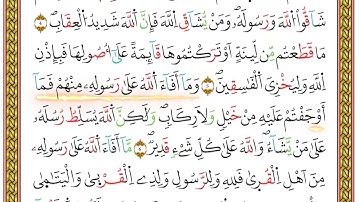 شَاۤقُّوا اللّٰهَ وَرَسُولَهُۚ وَمَنْ يُشَاۤقِّ اللّٰهَ فَاِنَّ اللّٰهَ شَدٖيدُ الْعِقَابِ
مَا قَطَعْتُمْ مِنْ لٖينَةٍ اَوْ تَرَكْتُمُوهَا قَاۤئِمَةً عَلٰٓى اُصُولِهَا فَبِاِذْنِ
اللّٰهِ وَلِيُخْزِيَ الْفَاسِقٖينَ ٥ وَمَاۤ اَفَاۤءَ اللّٰهُ عَلٰى رَسُولِهٖ مِنْهُمْ فَمَاۤ
اَوْجَفْتُمْ عَلَيْهِ مِنْ خَيْلٍ وَلَا رِكَابٍ وَلٰكِنَّ اللّٰهَ يُسَلِّطُ رُسُلَهُ
عَلٰى مَنْ يَشَاۤءُۜ وَاللّٰهُ عَلٰى كُلِّ شَيْءٍ قَدٖيرٌ ٦ مَاۤ اَفَاۤءَ اللّٰهُ عَلٰى رَسُولِهٖ
مِنْ اَهْلِ الْقُرٰى فَلِلّٰهِ وَلِلرَّسُولِ وَلِذِي الْقُرْبٰى وَالْيَتَامٰى